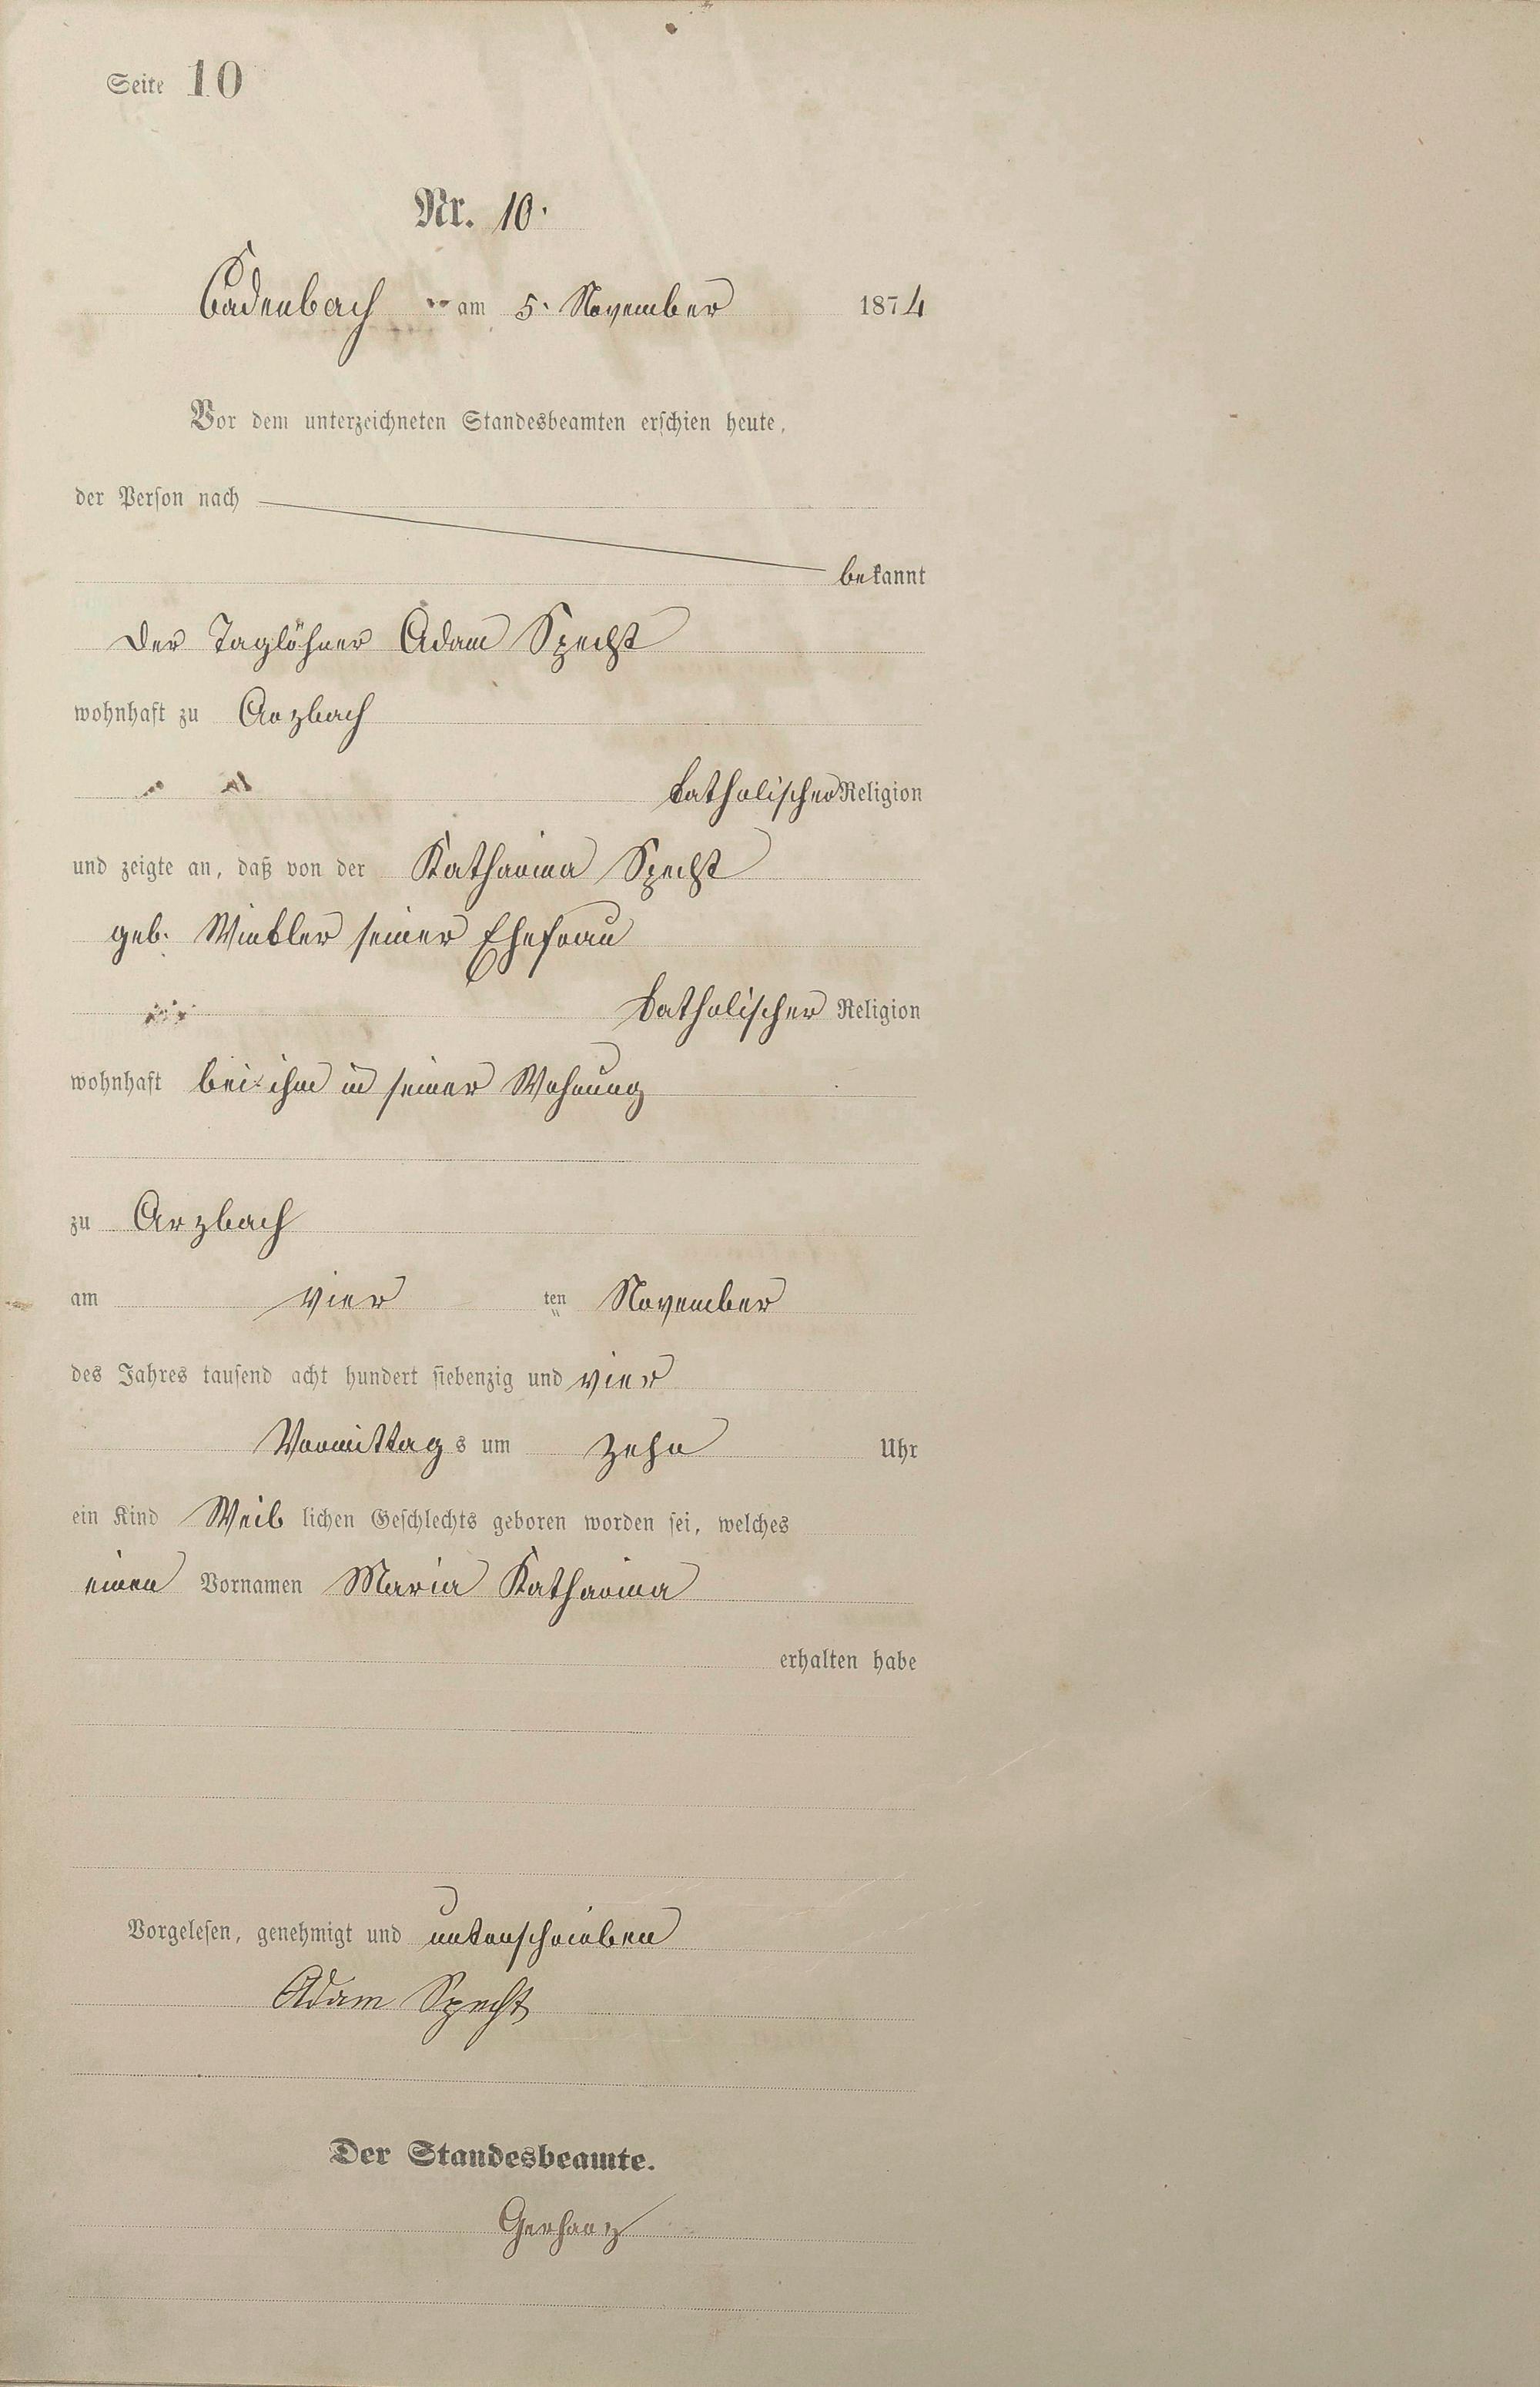 Seite 10
Nr. 10.
Cadenbach am 5. November 1874
Vor dem unterzeichneten Standesbeamten erschien heute,
der Person nach
bekannt
der Taglöhner Adam Specht
wohnhaft zu Arzbach
katholischer Religion
und zeigte an, daß von der Katharina Specht
geb. Winkler seiner Ehefrau
katholischer Religion
wohnhaft bei ihm in seiner Wohnung
zu Arzbach
am vier ten November
des Jahres tausend acht hundert siebenzig und vier
Vormittag s um zehn Uhr
ein Kind Weib lichen Geschlechts geboren worden sei, welches
einen Vornamen Maria Katharina
erhalten habe
Vorgelesen, genehmigt und unterschrieben
Adam Specht
Der Standesbeamte.
Gerharz